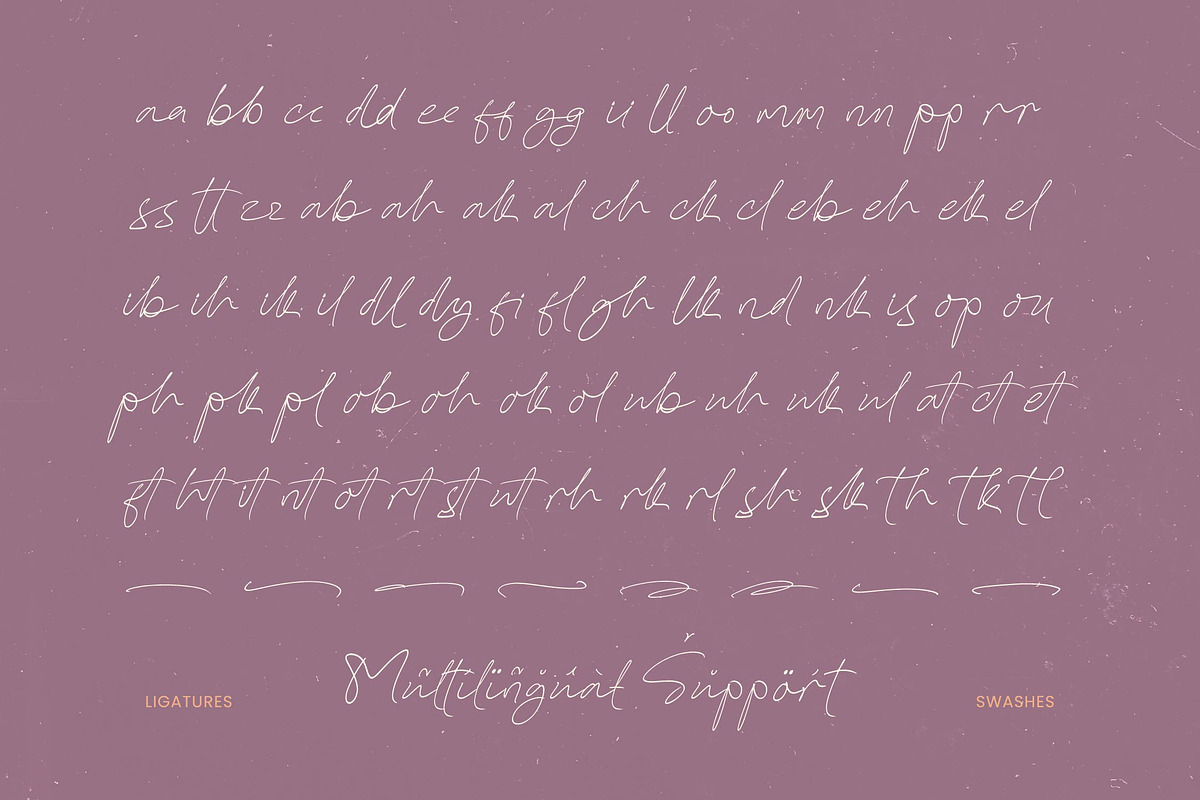 aa bb cc dd ee ff gg ii ll oo mm nn pp rr
ss tt zz ab ah ak al ch ck cl eb eh ek el
ib ih ik il dl dy fi fl gh lk nd nk is op ou
ph pk pl ob oh ok ol ub uh uk ul at ct et
ft ht it nt ot rt st ut rh rk rl sh sk th tk tl
Mũltĩlïñğûàł Šůppört
LIGATURES
SWASHES